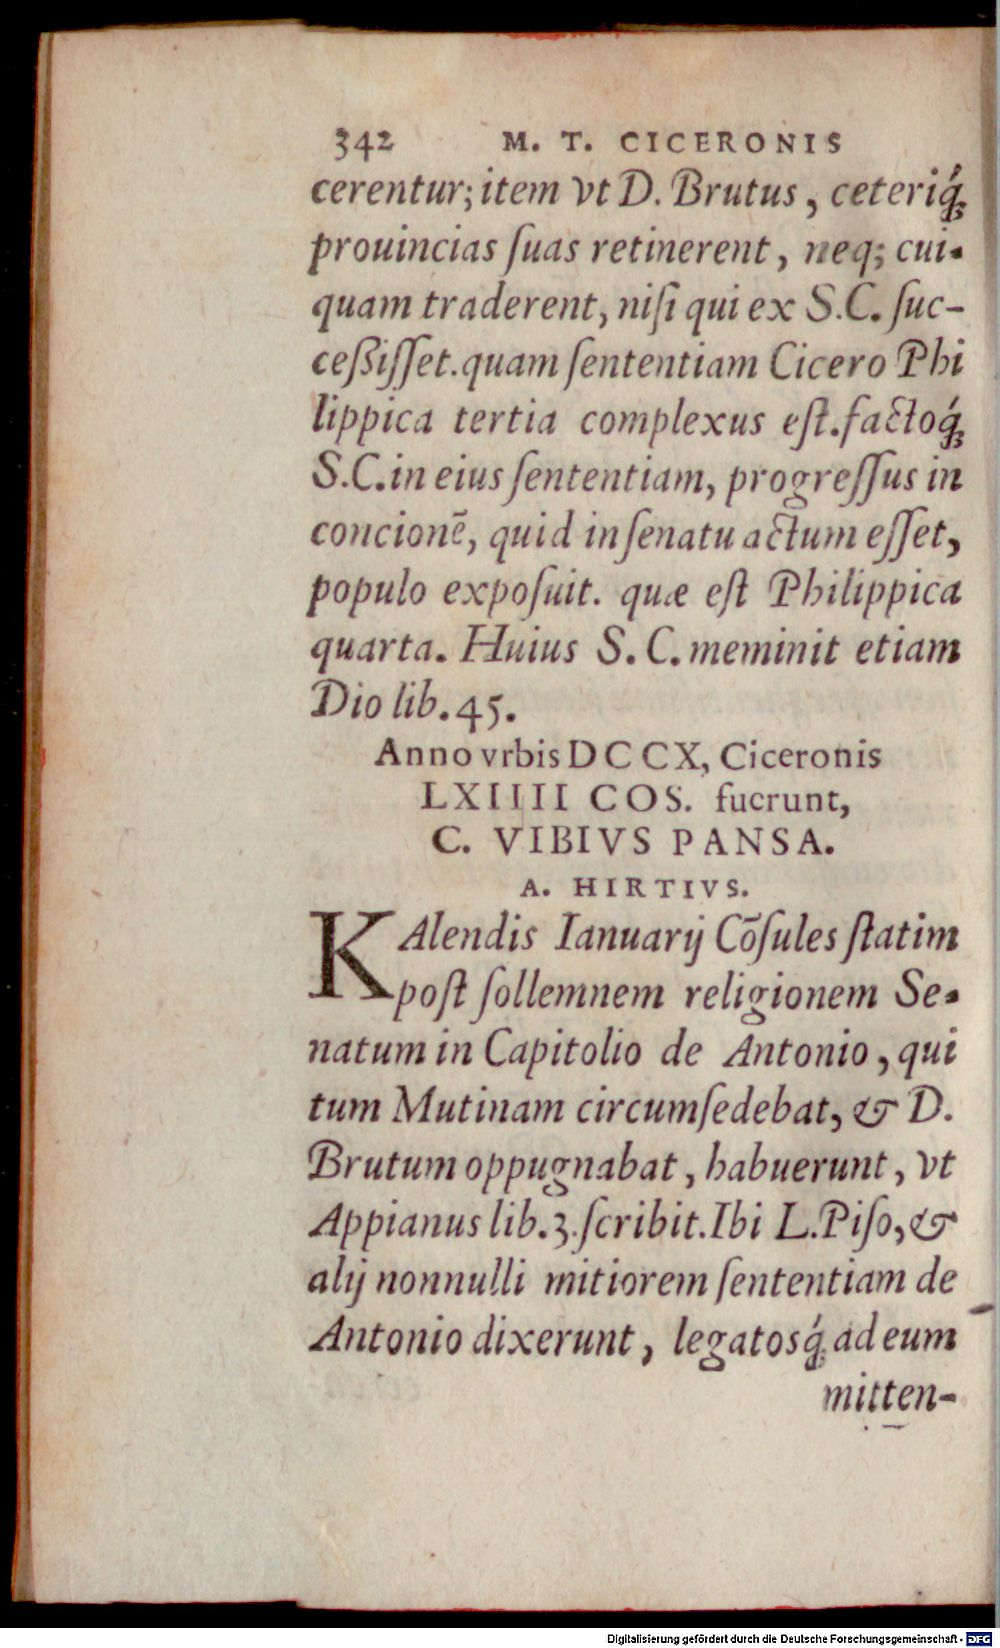 342 M. T. CICERONIS
cerentur; item vt D. Brutus, ceteriq́;
prouincias ſuas retinerent, neq; cui-
quam traderent, niſi qui ex S.C. ſuc-
ceßiſſet. quam ſententiam Cicero Phi
lippica tertia complexus eſt. factoq́;
S.C. in eius ſententiam, progreſſus in
concionē, quid in ſenatu actum eſſet,
populo expoſuit. quæ eſt Philippica
quarta. Huius S. C. meminit etiam
Dio lib. 45.
Anno vrbis DCCX, Ciceronis
LXIIII COS. fuerunt,
C. VIBIVS PANSA.
A. HIRTIVS.
KAlendis Ianuarij Cōſules ſtatim
poſt ſollemnem religionem Se-
natum in Capitolio de Antonio, qui
tum Mutinam circumſedebat, & D.
Brutum oppugnabat, habuerunt, vt
Appianus lib. 3. ſcribit. Ibi L. Piſo, &
alij nonnulli mitiorem ſententiam de
Antonio dixerunt, legatosq́; ad eum
mitten-
Digitalisierung gefördert durch die Deutsche Forschungsgemeinschaft - DFG